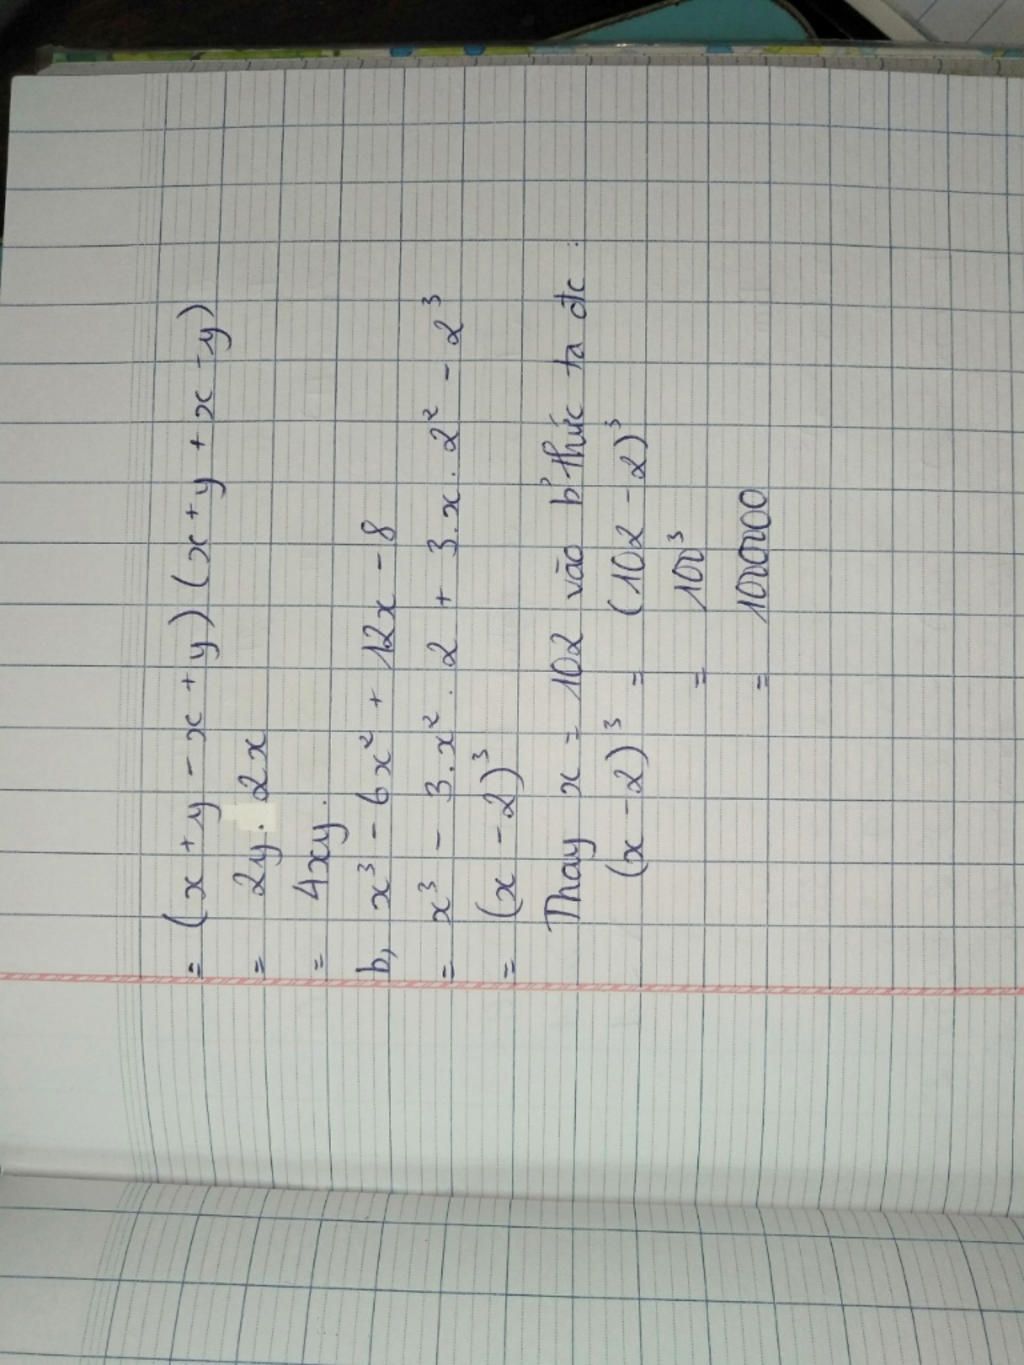 = (x + y - x + y) (x + y + x - y)
= 2y. 2x
= 4xy.
b, x³ - 6x² + 12x - 8
= x³ - 3.x². 2 + 3.x. 2² - 2³
= (x - 2)³
Thay x = 102 vào b' thức ta đc :
(x - 2)³ = (102 - 2)³
= 100³
= 1000000